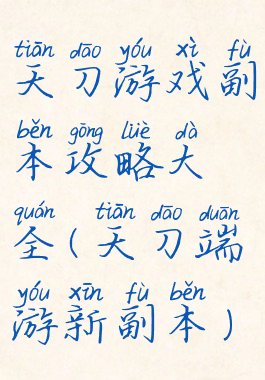 tiān dāo yóu xì fù
天刀游戏副
běn gōng lüè dà
本攻略大
quán tiān dāo duān
全(天刀端
yóu xīn fù běn
游新副本)